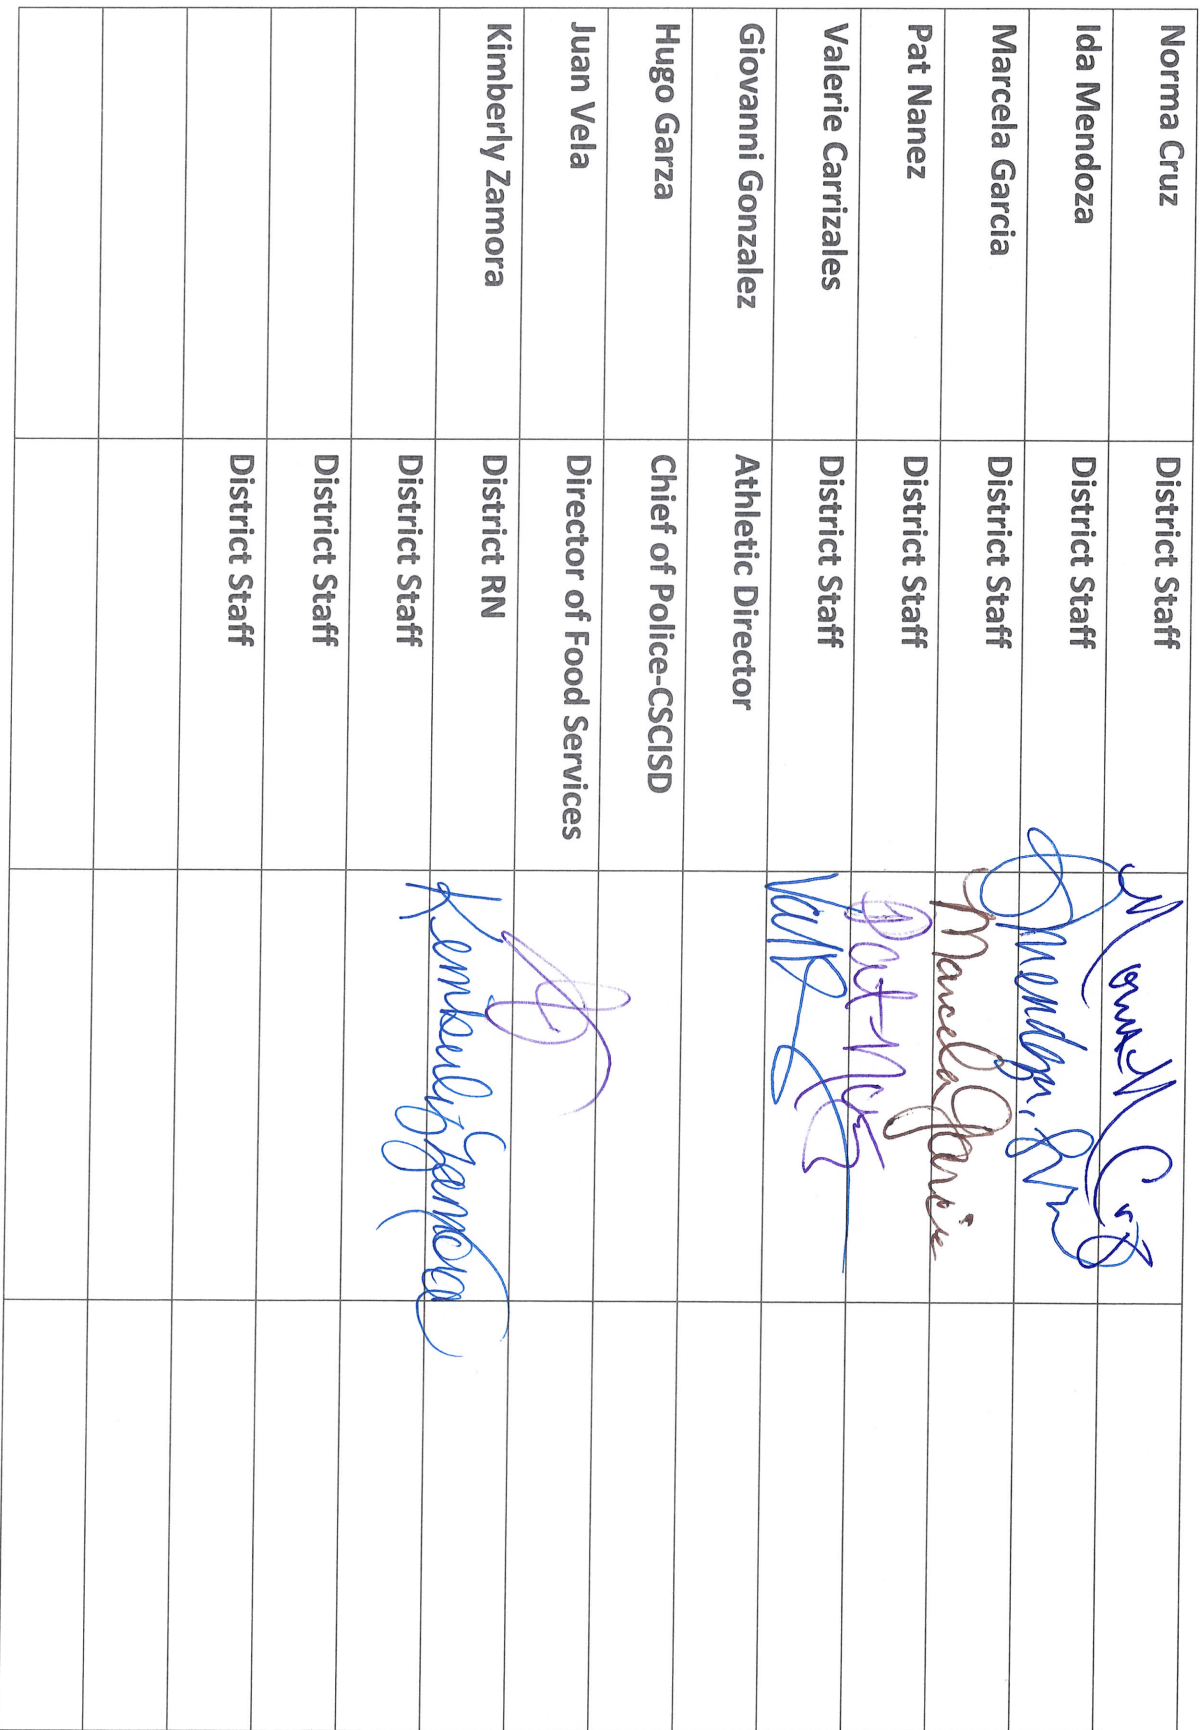 Norma Cruz District Staff Norma Cruz
Ida Mendoza District Staff
Marcela Garcia District Staff Marcela Garcia
Pat Nanez District Staff Pat
Valerie Carrizales District Staff
Giovanni Gonzalez Athletic Director
Hugo Garza Chief of Police-CSCISD
Juan Vela Director of Food Services
Kimberly Zamora District RN Kimberly Zamora
District Staff
District Staff
District Staff